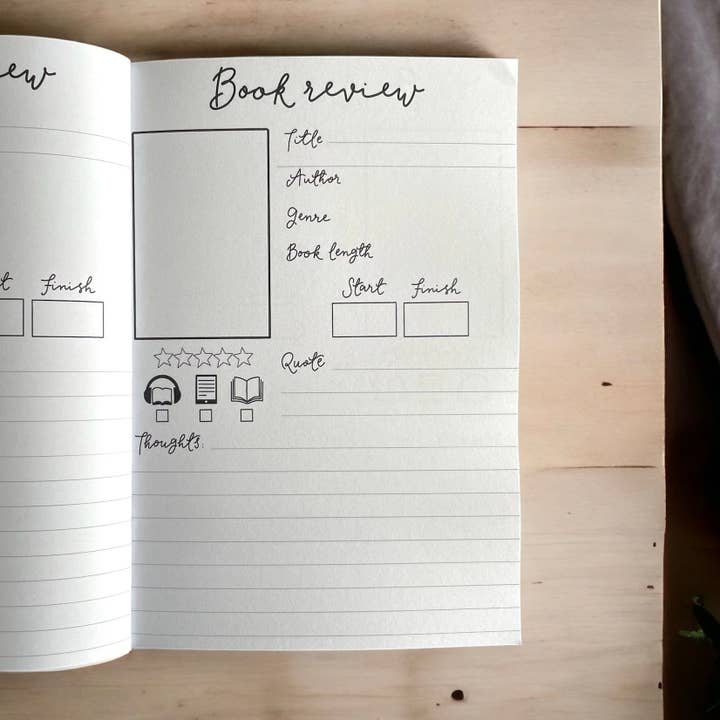 ew
Book review
Title
Author
Genre
Book length
t Finish
Start Finish
Quote
Thoughts: